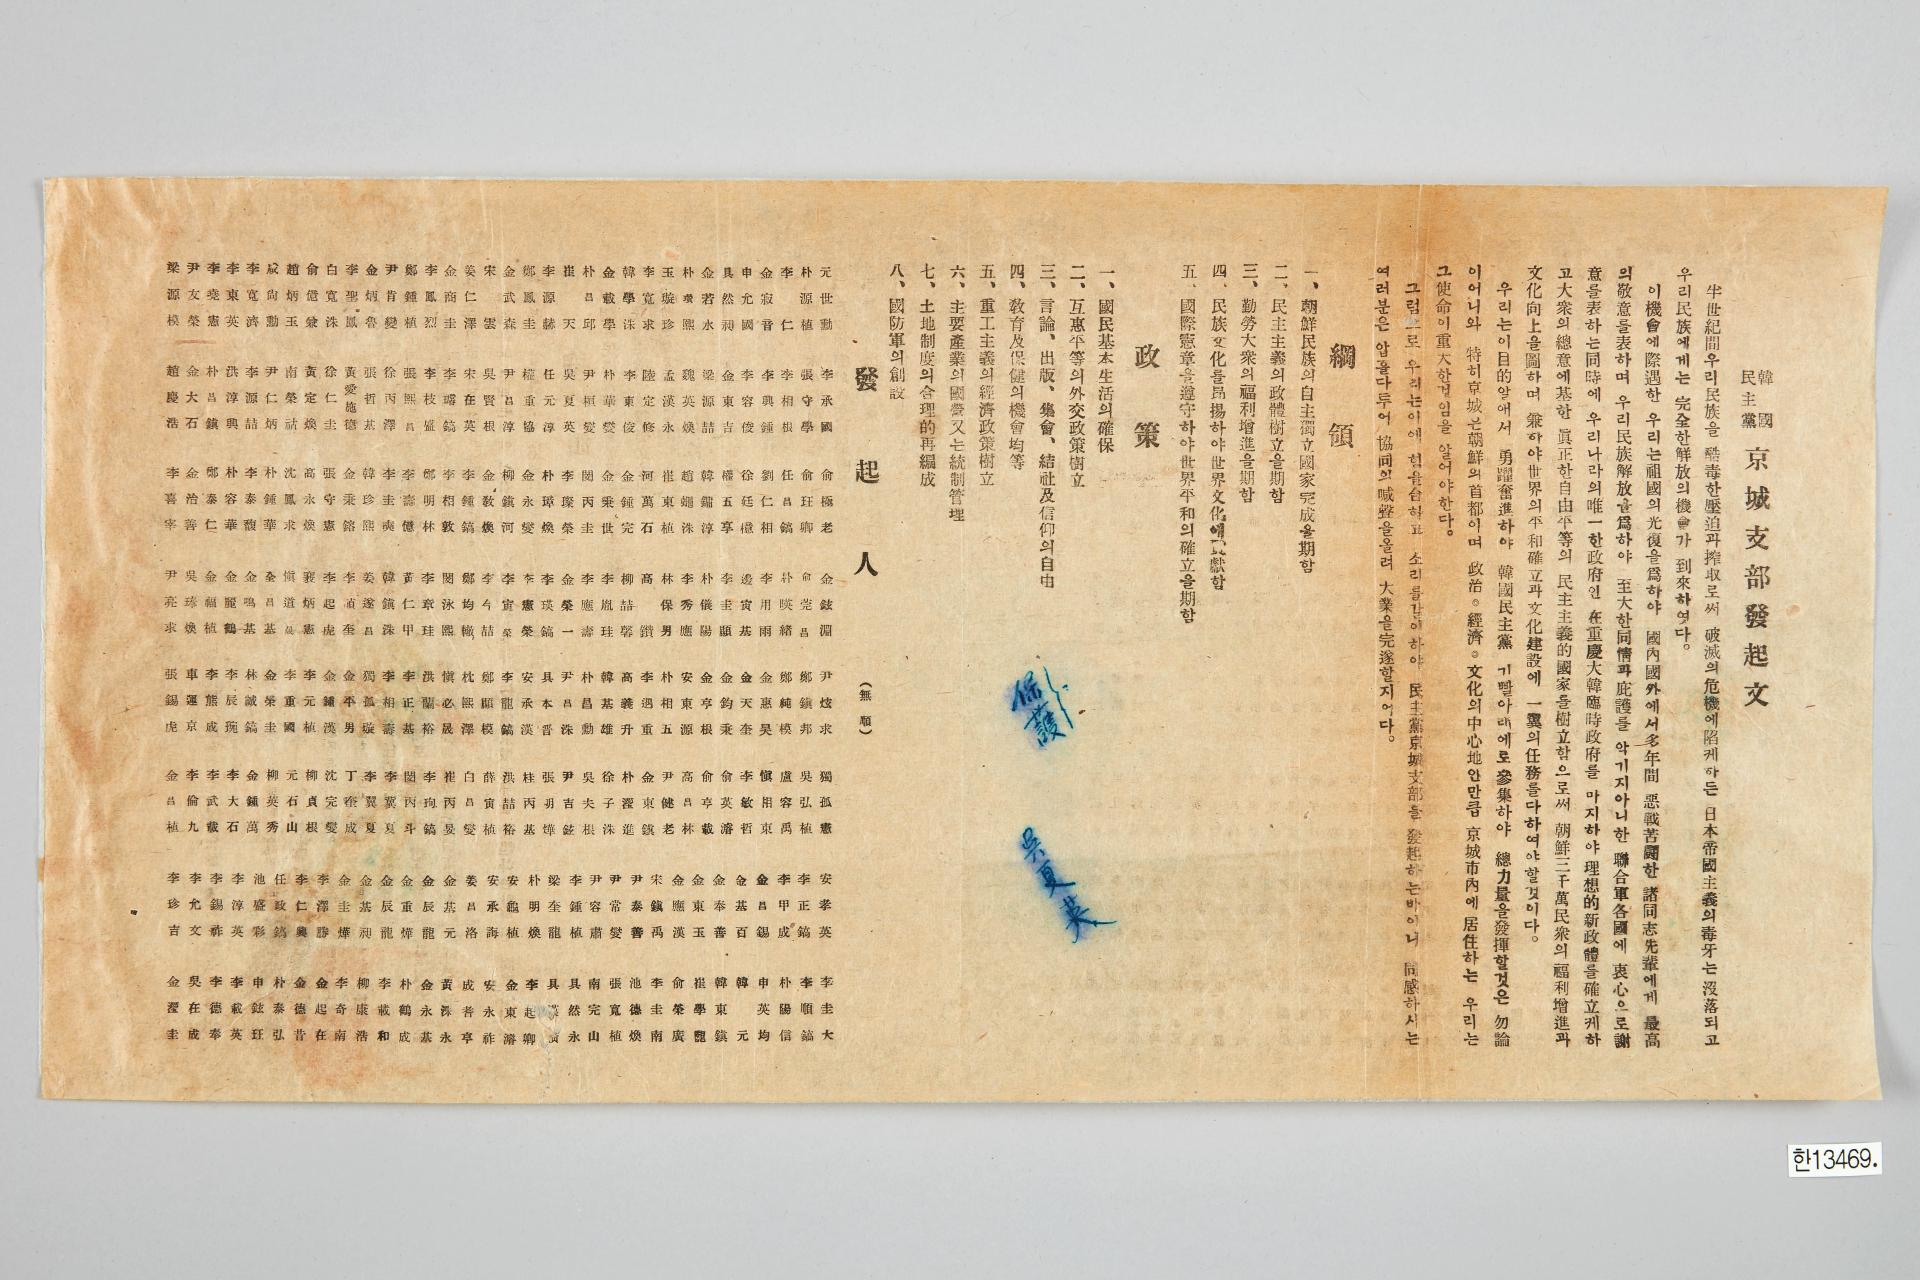 韓國
民主黨 京城支部發起文
半世紀間우리民族을 酷毒한壓迫과搾取로써 破滅의危機에陷케하든 日本帝國主義의毒牙는沒落되고
우리民族에게는 完全한解放의機會가 到來하엿다。
이機會에際遇한 우리는祖國의光復을爲하야 國內國外에서多年間 惡戰苦鬪한 諸同志先輩에게 最高
의敬意를表하며 우리民族解放을爲하야 至大한同情과庇護를 악기지아니한 聯合軍各國에 衷心으로謝
意를表하는同時에 우리나라의唯一한政府인 在重慶大韓臨時政府를 마지하야理想的新政體를確立케하
고大衆의總意에基한 眞正한自由平等의 民主主義的國家를樹立함으로써 朝鮮三千萬民衆의福利增進과
文化向上을圖하며 兼하야世界의平和確立과文化建設에 一翼의任務를다하여야할것이다。
우리는이目的알애서 勇躍奮進하야 韓國民主黨 기빨아래에로參集하야 總力量을發揮할것은勿論
이어니와 特히京城은朝鮮의首都이며 政治。經濟。文化의中心地안만큼 京城市內에居住하는 우리는
그使命이重大한것임을 알어야한다。
그럼으로 우리는이에 힘을合하고 소리를갇이하야 民主黨京城支部를 發起하는바이니 同感하시는
여러분은 압흘다투어 協同의喊聲을올려 大業을完遂할지어다。
綱領
一、朝鮮民族의自主獨立國家完成을期함
二、民主主義의政體樹立을期함
三、勤勞大衆의福利增進을期함
四、民族文化를昂揚하야世界文化에貢獻함
五、國際憲章을遵守하야世界平和의確立을期함
政策
一、國民基本生活의確保
二、互惠平等의外交政策樹立
三、言論、出版、集會、結社及信仰의自由
四、敎育及保健의機會均等
五、重工主義의經濟政策樹立
六、主要產業의國營又는統制管理
七、土地制度의合理的再編成
八、國防軍의創設
保護
吳夏英
發起人 (無順)
元世勳 朴源植 李仁 金寂音 申允國 具然昶 金若水 朴瓚熙 玉璿珍 李寬求 韓學洙 金載學 朴昌邱 崔天 李源赫 鄭鳳圭 金武森 宋雲 姜仁澤 金商圭 李鳳烈 鄭鍾植 尹肯變 金炳魯 李聖鳳 白寬洙 俞億兼 趙炳玉 咸尙勳 李寬濟 李東英 李堯憲 尹友榮 梁源模
李承國 張守學 李相根 李興鍾 李容俊 金東吉 梁源喆 魏英煥 孟漢永 陸定修 李東俊 朴華變 尹桓變 吳夏英 任元英 權重協 尹昌淳 吳賢根 宋在根 李曙鎬 李枝盛 張熙昌 徐丙澤 張哲基 黃愛施德 徐仁圭 黃定煥 南榮祜 尹仁炳 李源喆 洪淳興 朴昌鎭 金大石 趙慶浩
俞極老 俞珏卿 任昌鎬 劉仁相 徐廷櫶 權五享 韓鏞淳 崔東植 河萬石 金鍾完 金秉世 閔丙圭 李璨榮 朴璋煥 金永變 柳鎭河 金敎煥 李鍾鎬 李相敦 鄭明林 李壽億 李圭奭 韓珍熙 金秉鎔 張守憲 高永煥 沈鳳求 朴鍾華 李泰馥 朴容華 鄭泰仁 金治善 李喜宰
金鉉淵 俞莞昌 朴暎緖 李用雨 邊寅基 李圭顯 朴儀陽 李秀應 林保男 高鑽 柳喆馨 李胤珪 李應壽 金榮一 李瑛鎬 李憲榮 李寅榮 李今喆 鄭均轍 閔泳熙 李章珪 黃仁甲 韓鎭洙 姜遂昌 李碩奎 李起虎 襄炳憲 愼道晟 金昌基 金鳴基 金麗鶴 金福植 吳琫煥 尹亮求
尹炫求 鄭鎭邦 鄭純模 金惠昊 金天奎 金鈞秉 金亨根 安東源 朴相五 李遇重 高義升 韓基雄 朴昌勳 尹昌洙 具本晋 安承漢 李龍鎬 鄭顯模 枕熙澤 愼必晟 洪蘭裕 李正基 李相壽 獨孤璇 金平男 金鍾漢 李元植 李重國 金榮圭 林誠鎬 李辰琬 李熊成 車運京 張錫虎
獨孤憲 吳弘植 盧容禹 愼用東 李敏哲 俞英濬 俞亨載 高昌林 尹健老 金東鎭 朴瀅進 徐子洙 吳夫根 尹吉鉉 張明燁 桂丙基 洪喆裕 薛寅植 白昌變 崔丙晏 李珣鎬 閔丙斗 李冀夏 李翼夏 丁奎成 沈完變 柳貞根 元石山 柳英秀 金鍾萬 李大石 李武載 李倫九 金昌植
安孝英 李正鎬 李甲成 金昌錫 金基百 金奉善 金東玉 金應漢 宋鎭禹 尹泰善 尹常變 尹容肅 李鍾植 梁奎龍 朴明煥 安龜植 安承誨 姜昌洛 金基元 金辰龍 金重燁 金辰龍 金基昶 金圭燁 李澤勝 李仁興 任政鎬 池盛彩 李淳英 李錫祚 李允文 李珍吉
李圭大 李順鎬 朴陽信 申英均 韓元 韓東鎭 崔學龍 俞榮廣 李圭南 池德煥 張寬植 南完山 具然永 李起卿 金東濬 安永祚 成耆亨 黃泳永 金永基 朴鶴成 李載和 柳康浩 李奇南 金起在 金德昔 朴泰弘 申鉉玨 李載英 李德奉 吳在成 金瀅圭
한13469.